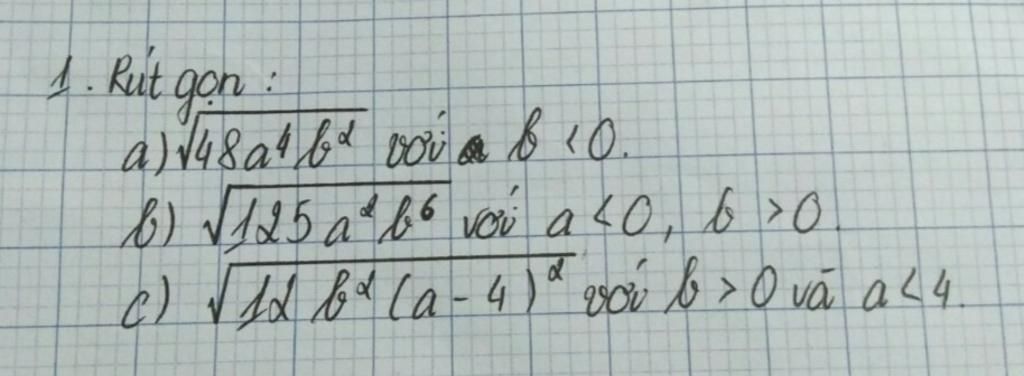 1. Rút gọn:
a) √48a⁴b² với b < 0.
b) √125a²b⁶ với a < 0, b > 0.
c) √12b²(a - 4)² với b > 0 và a < 4.